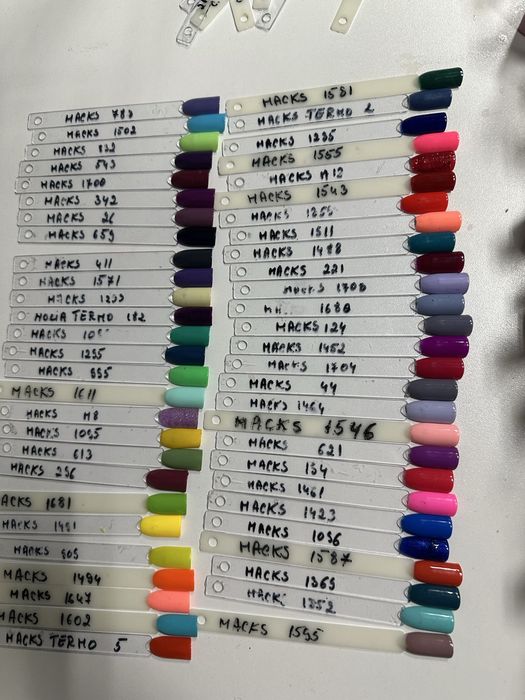 MACKS 783
MACKS 1502
MACKS 832
MACKS 543
MACKS 1700
MACKS 342
MACKS 26
MACKS 659
MACKS 411
MACKS 1571
MACKS 1233
MOLIA TERMO 182
MACKS
MACKS 1255
MACKS 555
MACKS 1611
MACKS M8
MACKS 1055
MACKS 613
MACKS 236
ACKS 1681
MACKS 1491
MACKS 505
MACKS 1494
MACKS 1647
MACKS 1602
MACKS TERMO 5
MACKS 1581
MACKS TERMO 2
MACKS 1235
MACKS 1555
MACKS M12
MACKS 1543
MACKS 1255
MACKS 1511
MACKS 1488
MACKS 221
MACKS 1708
1688
MACKS 124
MACKS 1452
MACKS 1704
MACKS 44
MACKS 1464
MACKS 1546
MACKS 621
MACKS 154
MACKS 1461
MACKS 1423
MACKS 1036
MACKS 1587
MACKS 1365
MACK 1352
MACKS 1595